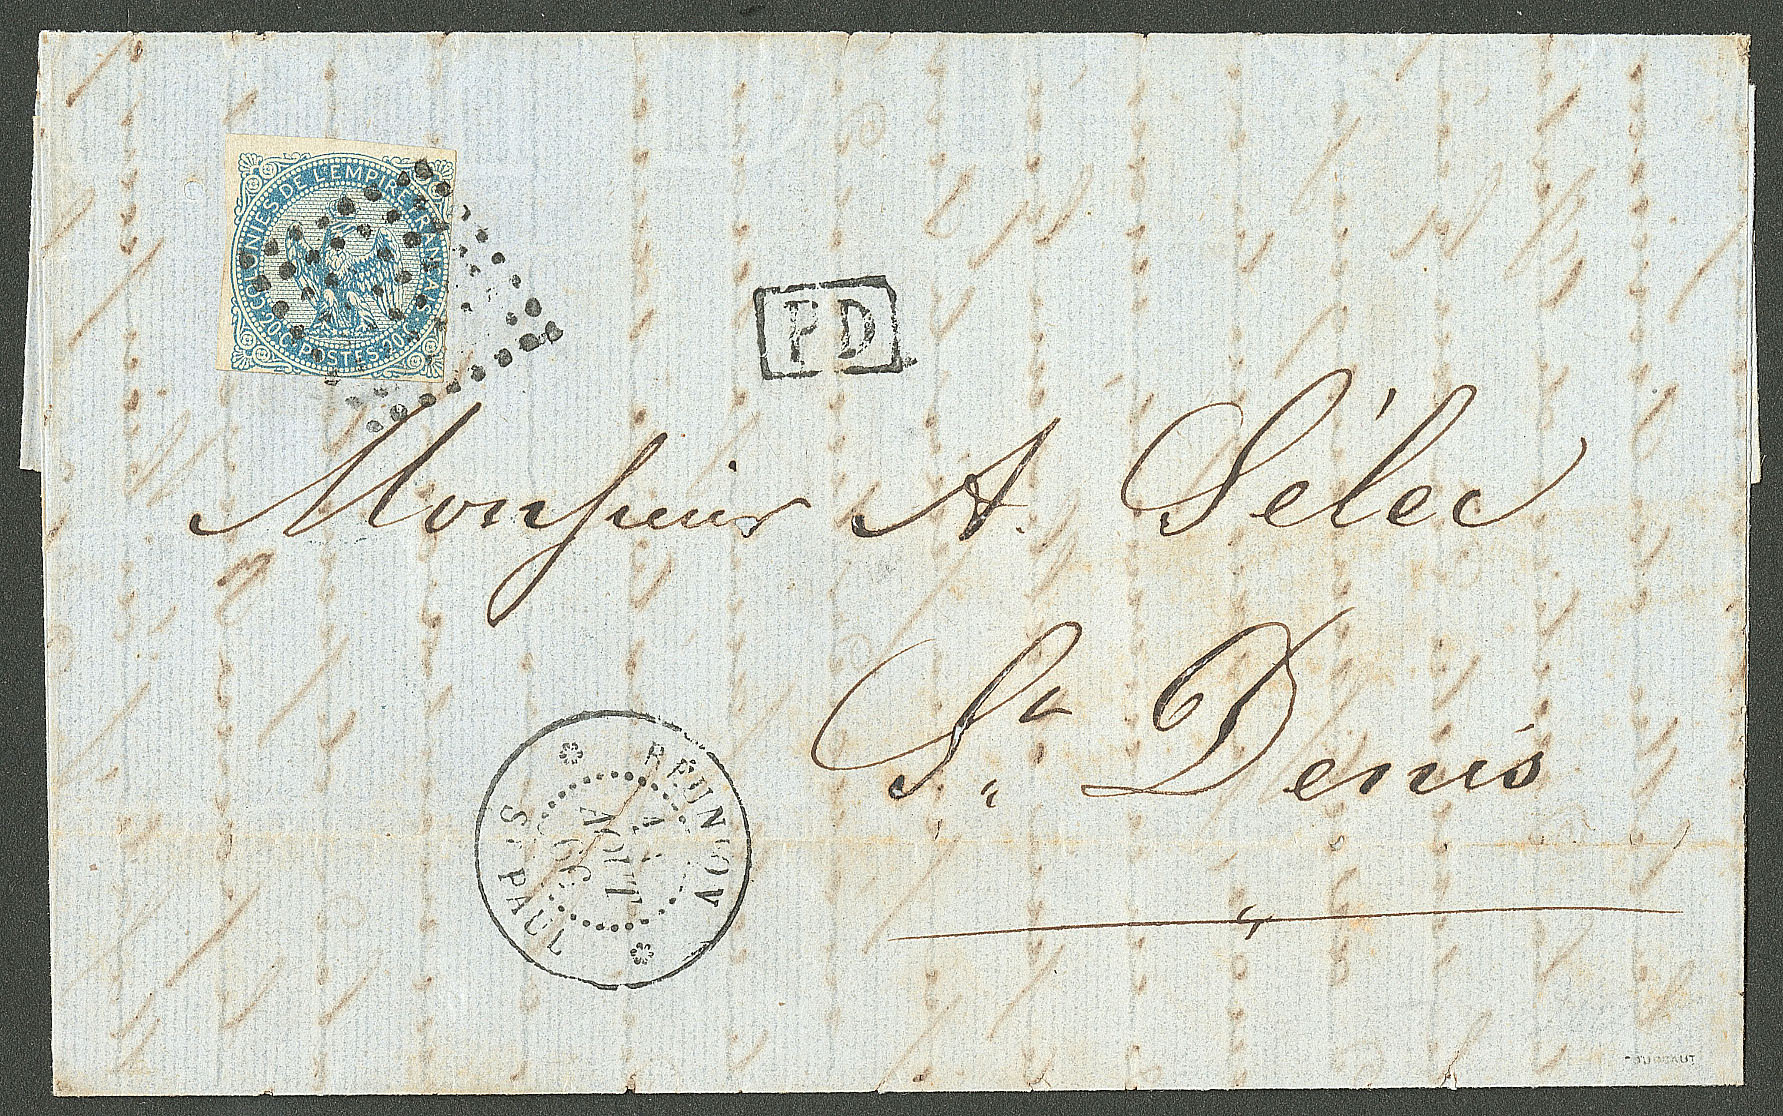 COLONIES DE L'EMPIRE FRANÇAIS
20C. POSTES 20C.
PD
Monsieur A. Sélec
St. Denis
REUNION
AOUT
66
ST PAUL